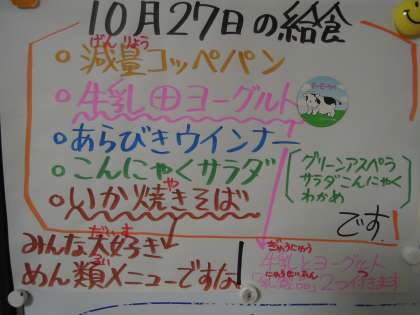 10月27日の給食
げんりょう
減量コッペパン
牛乳 田 ヨーグルト
あらびきウインナー
こんにゃくサラダ
グリーンアスペラ
サラダこんにゃく
わかめ
や
いか焼きそば
です
だいす
みんな大好き
るい
めん類メニューですな!
ぎゅうにゅう
牛乳とヨーグルト
にゅうせいひん
「乳製品」2つ付きます